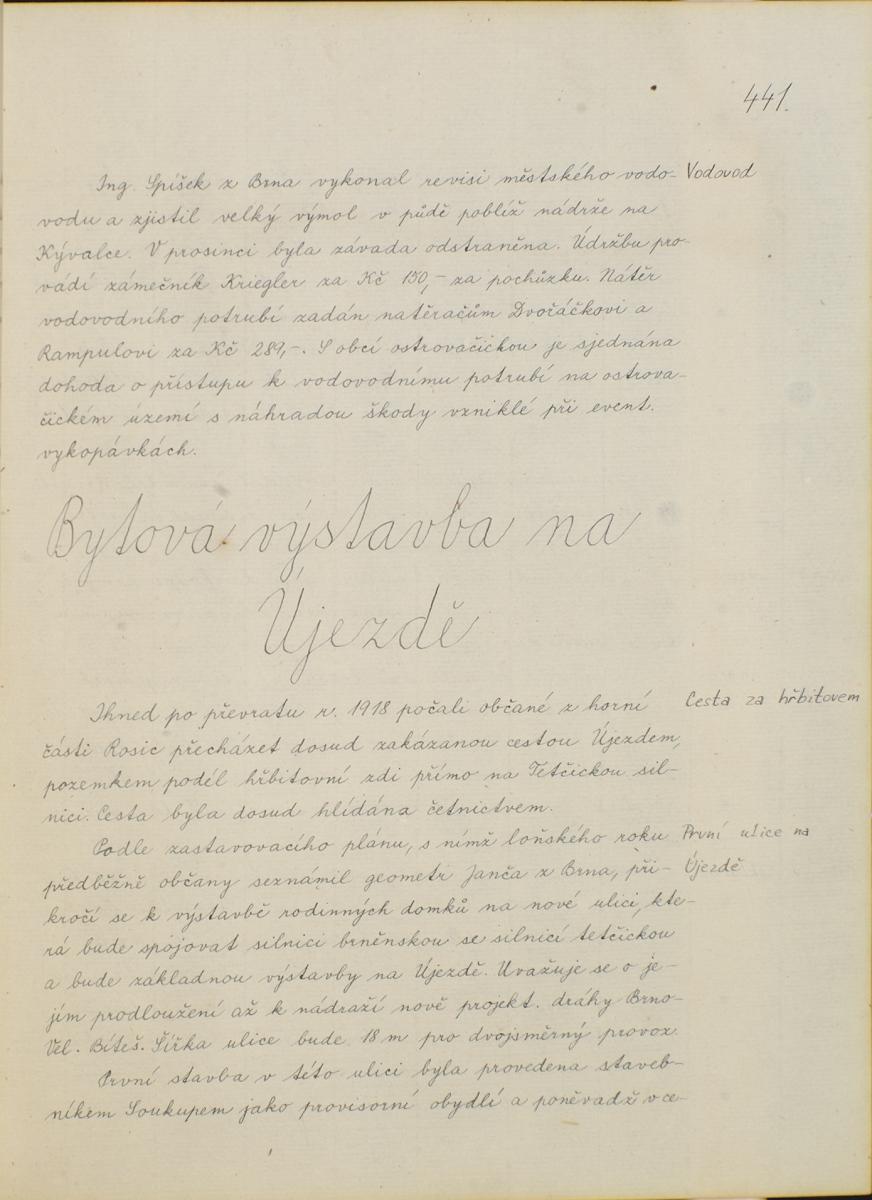 441.
Ing. Spíšek z Brna vykonal revisi městského vodo- Vodovod
vodu a zjistil velký výmol v půdě poblíž nádrže na
Kývalce. V prosinci byla závada odstraněna. Údržbu pro-
vádí zámečník Kriegler za Kč 150,- za pochůzku. Nátěr
vodovodního potrubí zadán natěračům Dvořáčkovi a
Rampulovi za Kč 289,-. S obcí ostrovačickou je sjednána
dohoda o přístupu k vodovodnímu potrubí na ostrova-
čickém území s náhradou škody vzniklé při event.
vykopávkách.
Bytová výstavba na
Újezdě
Ihned po převratu r. 1918 počali občané z horní Cesta za hřbitovem
části Rosic přecházet dosud zakázanou cestou Újezdem,
pozemkem podél hřbitovní zdi přímo na Tetčickou sil-
nici. Cesta byla dosud hlídána četnictvem.
Podle zastavovacího plánu, s nímž loňského roku První ulice na
předběžně občany seznámil geometr Janča z Brna, při- Újezdě
kročí se k výstavbě rodinných domků na nové ulici, kte-
rá bude spojovat silnici brněnskou se silnicí tetčickou
a bude základnou výstavby na Újezdě. Uvažuje se o je-
jím prodloužení až k nádraží nově projekt. dráhy Brno-
Vel. Bíteš. Šířka ulice bude 18 m pro dvojsměrný provoz.
První stavba v této ulici byla provedena staveb-
níkem Soukupem jako provisorní obydlí a poněvadž v ce-